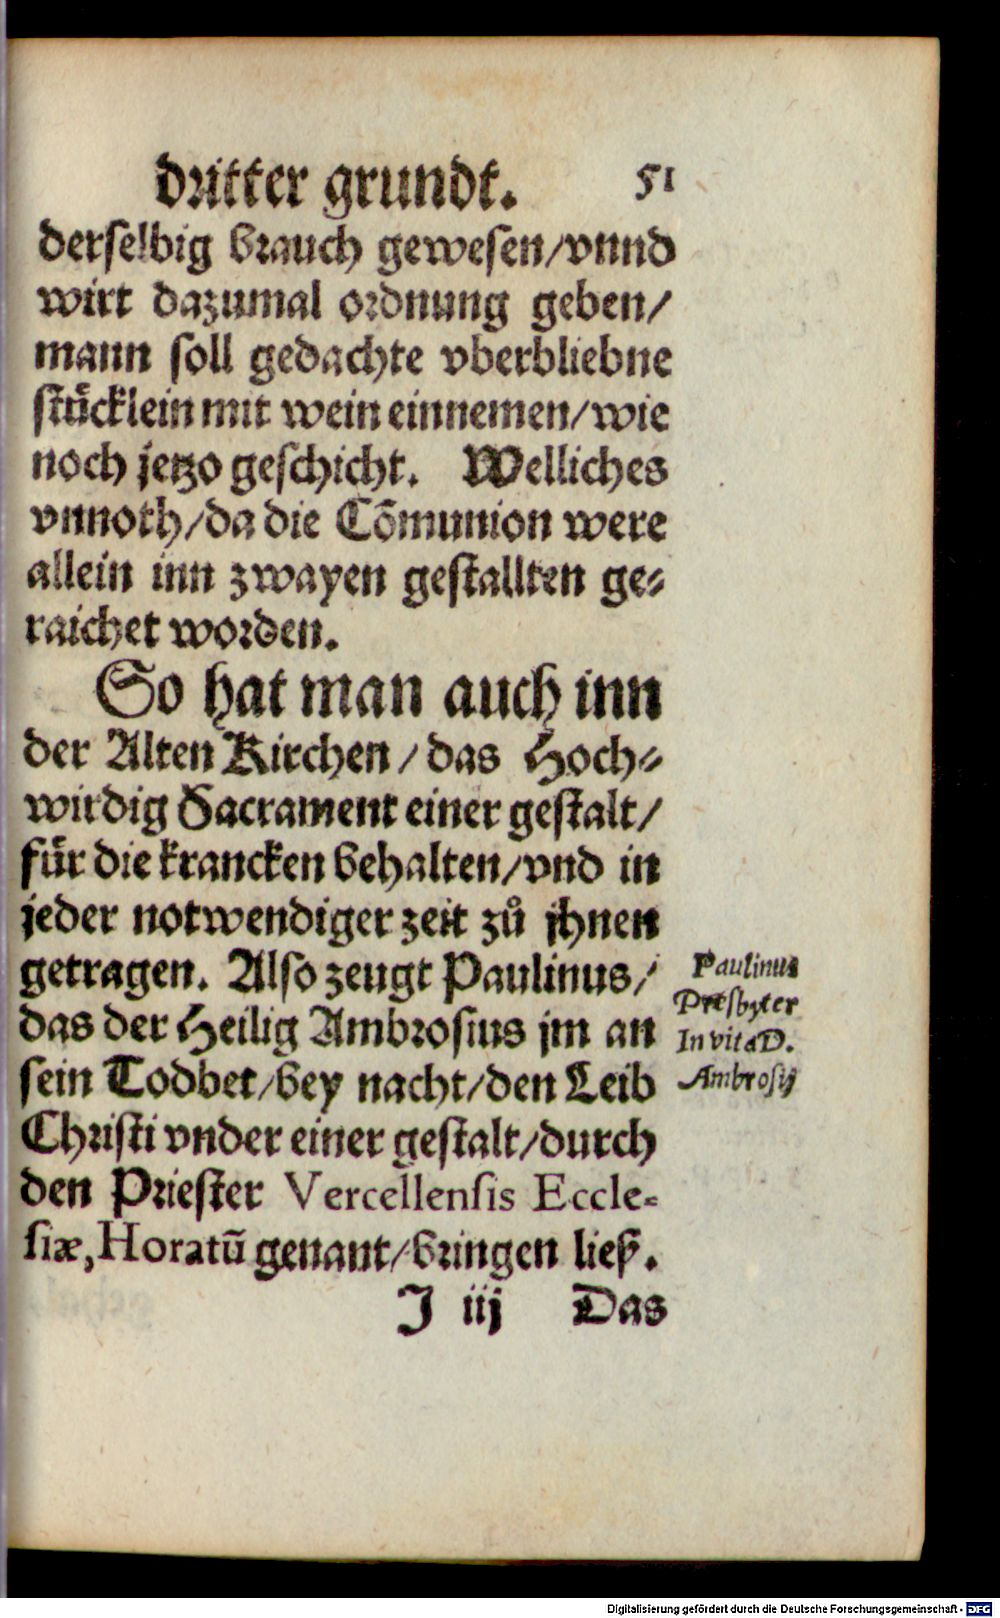 dritter grundt. 51
derselbig brauch gewesen/vnnd
wirt dazumal ordnung geben/
mann soll gedachte vberbliebne
stücklein mit wein einnemen/wie
noch jetzo geschicht. Welliches
vnnoth/da die Com̄union were
allein inn zwayen gestallten ge-
raichet worden.
So hat man auch inn
der Alten Kirchen/das Hoch-
wirdig Sacrament einer gestalt/
für die krancken behalten/vnd in
jeder notwendiger zeit zů jhnen
getragen. Also zeugt Paulinus/
das der Heilig Ambrosius jm an
sein Todbet/bey nacht/den Leib
Christi vnder einer gestalt/durch
den Priester Vercellensis Eccle-
siæ, Horatū genant/bringen ließ.
Paulinus
Presbyter
In vita D.
Ambrosij
J iij Das
Digitalisierung gefördert durch die Deutsche Forschungsgemeinschaft - DFG